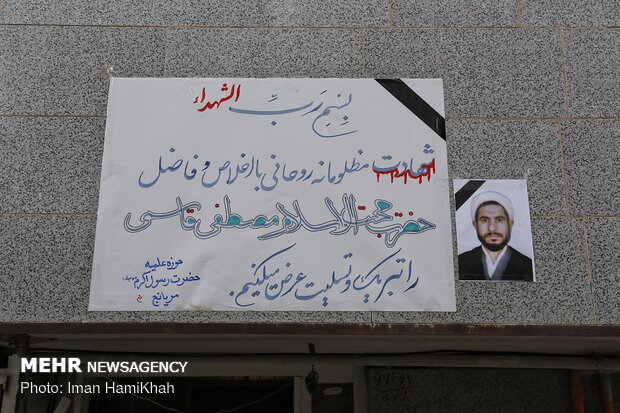 بسم رب الشهداء
شهادت مظلومانه روحانی بااخلاص و فاضل
حضرت حجة الاسلام مصطفی قاسمی
را تبریک و تسلیت عرض میکنیم.
حوزه علمیه
حضرت رسول اکرم
مریانج
MEHR NEWSAGENCY
Photo: Iman HamiKhah